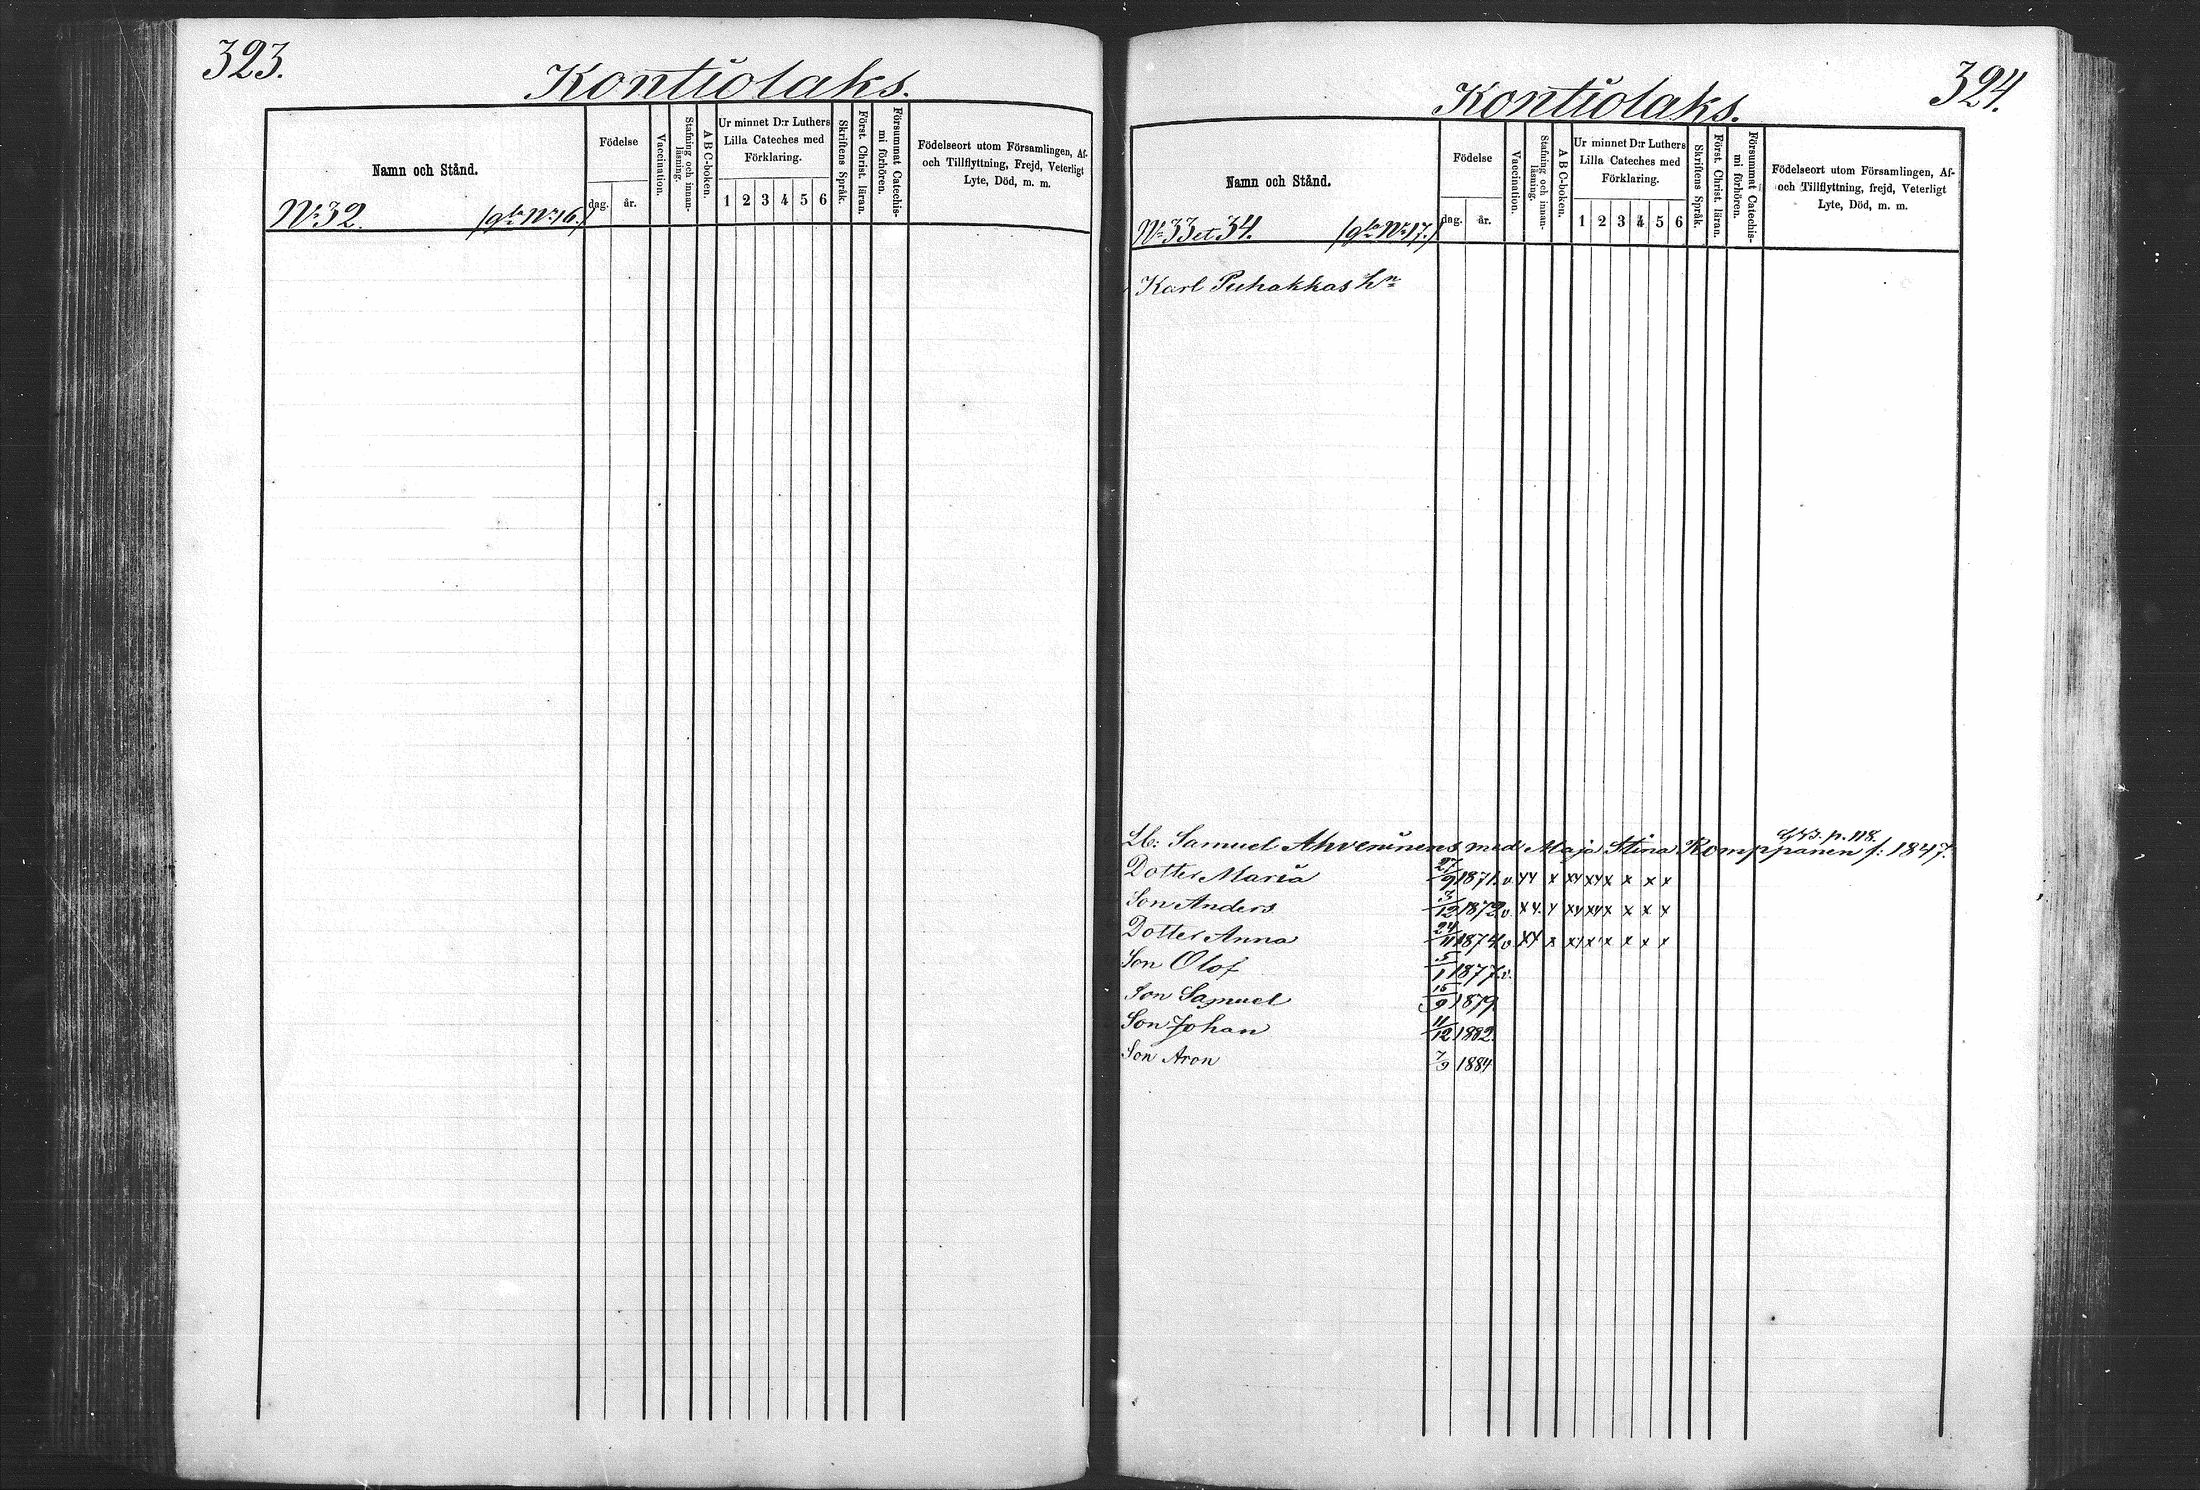 323.
Kontiolaks.
Namn och Stånd.
Födelse
dag. år.
Vaccination.
Stafning och innan-
läsning.
A B C-boken.
Ur minnet D:r Luthers
Lilla Cateches med
Förklaring.
1 2 3 4 5 6
Skriftens Språk.
Först. Christ. läran.
Försummat Catechis-
mi förhören.
Födelseort utom Församlingen, Af-
och Tillflyttning, Frejd, Veterligt
Lyte, Död, m. m.
No 32. /gla No 16./
324.
Kontiolaks.
Namn och Stånd.
Födelse
dag. år.
Vaccination.
Stafning och innan-
läsning.
A B C-boken.
Ur minnet D:r Luthers
Lilla Cateches med
Förklaring.
1 2 3 4 5 6
Skriftens Språk.
Först. Christ. läran.
Försummat Catechis-
mi förhören.
Födelseort utom Församlingen, Af-
och Tillflyttning, frejd, Veterligt
Lyte, Död, m. m.
No 33 et 34. /gla No 17./
Karl Puhakkas hn
p. 118.
Lb: Samuel Ahveninens med Maja Stina Komppanen f: 1847.
Dotter Maria 27/9 1871. v xx x xx xx x x x x
Son Anders 3/12 1872 v. xx. x xx xx x x x x
Dotter Anna 24/11 1874 v xx x xx x x x x x
Son Olof 5/1 1877. v.
Son Samuel 15/9 1879.
Son Johan 11/12 1882.
Son Aron 7/9 1884